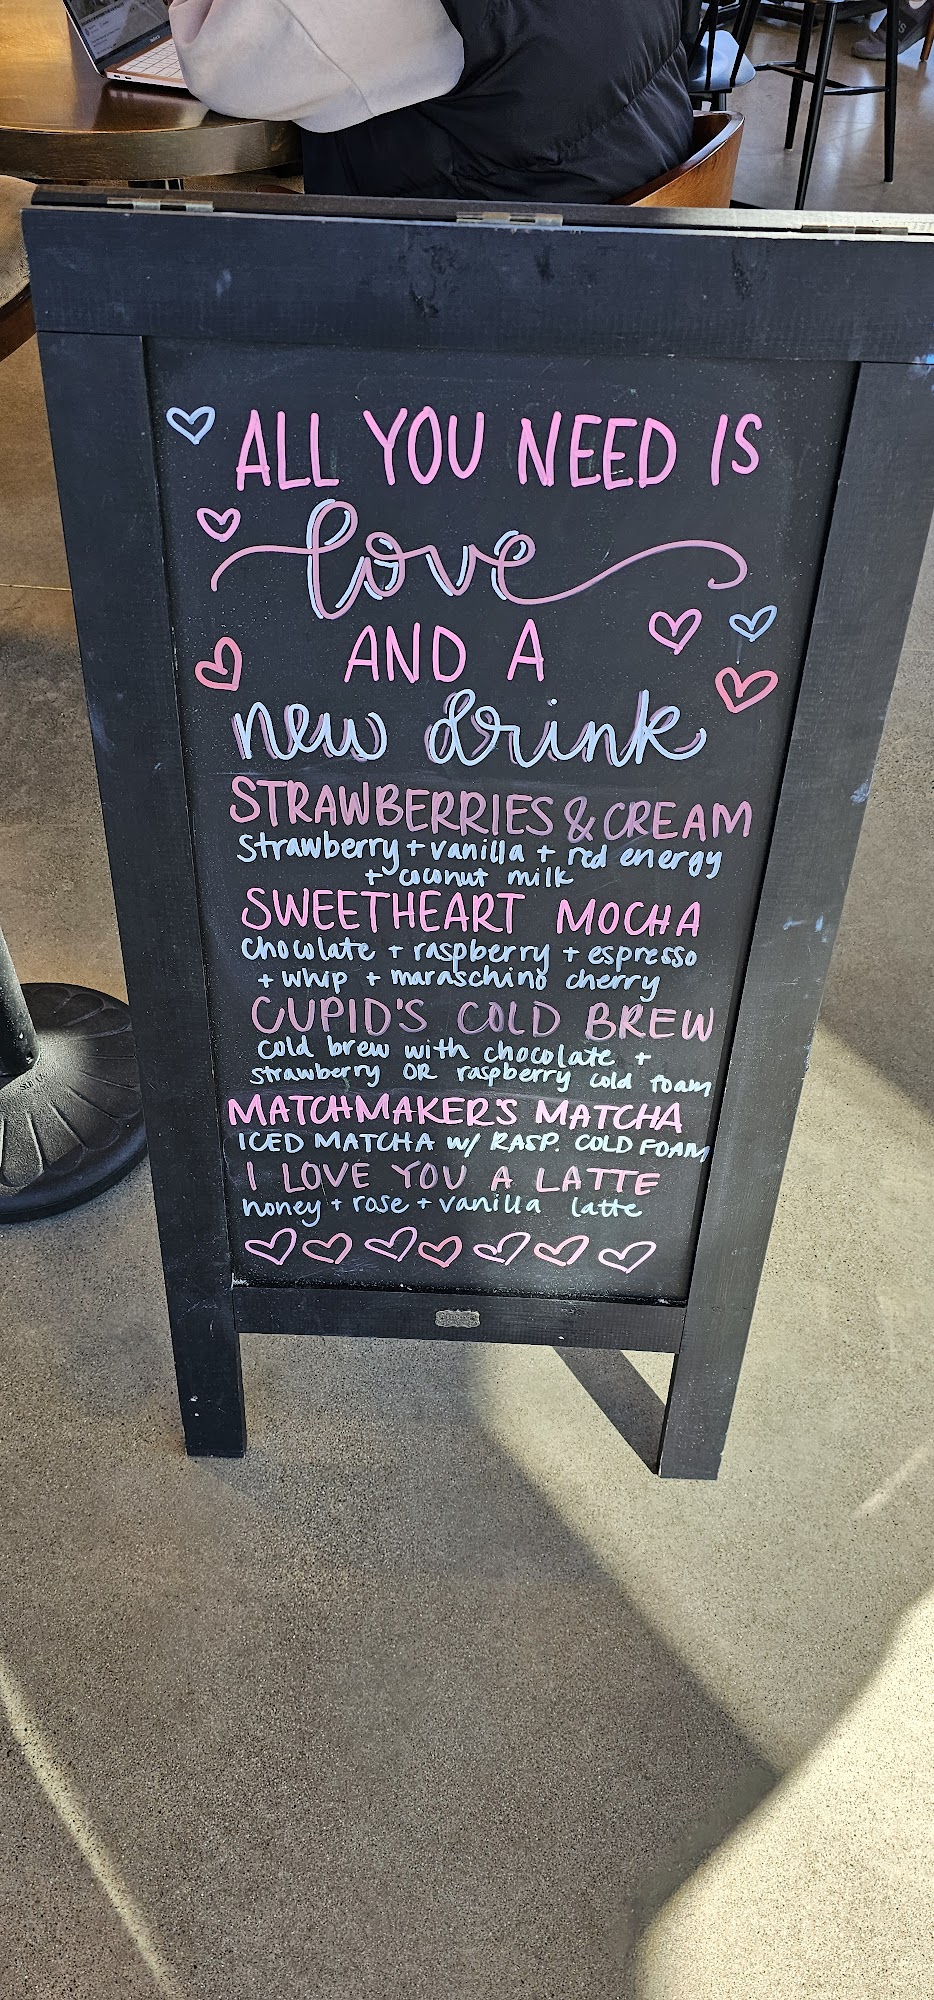 ALL YOU NEED IS
love
AND A
new drink
STRAWBERRIES & CREAM
Strawberry + vanilla + red energy
+ coconut milk
SWEETHEART MOCHA
chocolate + raspberry + espresso
+ whip + maraschino cherry
CUPID'S COLD BREW
cold brew with chocolate +
strawberry OR raspberry cold foam
MATCHMAKER'S MATCHA
ICED MATCHA W/ RASP. COLD FOAM
I LOVE YOU A LATTE
honey + rose + vanilla latte